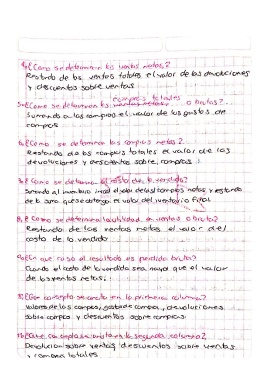 4.¿Como se determinan las ventas netas?
Restando de las ventas totales el valor de las devoluciones
y descuentos sobre ventas
compras totales
5.¿Como se determinan las ventas netas, o brutas?.
Sumando a las compras el valor de los gastos de
compras
6.¿Como se determinan las compras netas?
Restando de las compras totales el valor de las
devoluciones y descuentos sobre compras
7.¿Como se determina el costo de lo vendido?
Sumando al inventario inicial el valor de las compras netas y restando
de la suma que se obtenga el valor del inventario final
8.¿Como se determina la utilidad en ventas o bruta?
Restando de las ventas netas el valor del
costo de lo vendido
9.¿En que caso el resultado es perdida bruta?
Cuando el costo de lo vendido sea mayor que el valor
de las ventas netas
10.¿Que concepto se anota en la primera columna?
Valores de las compras, gastos de compra, devoluciones
sobre compras y descuentos sobre compras
11.¿Que concepto se anota en la segunda columna?
Devolucion sobre ventas descuentos sobre ventas
y compras totales